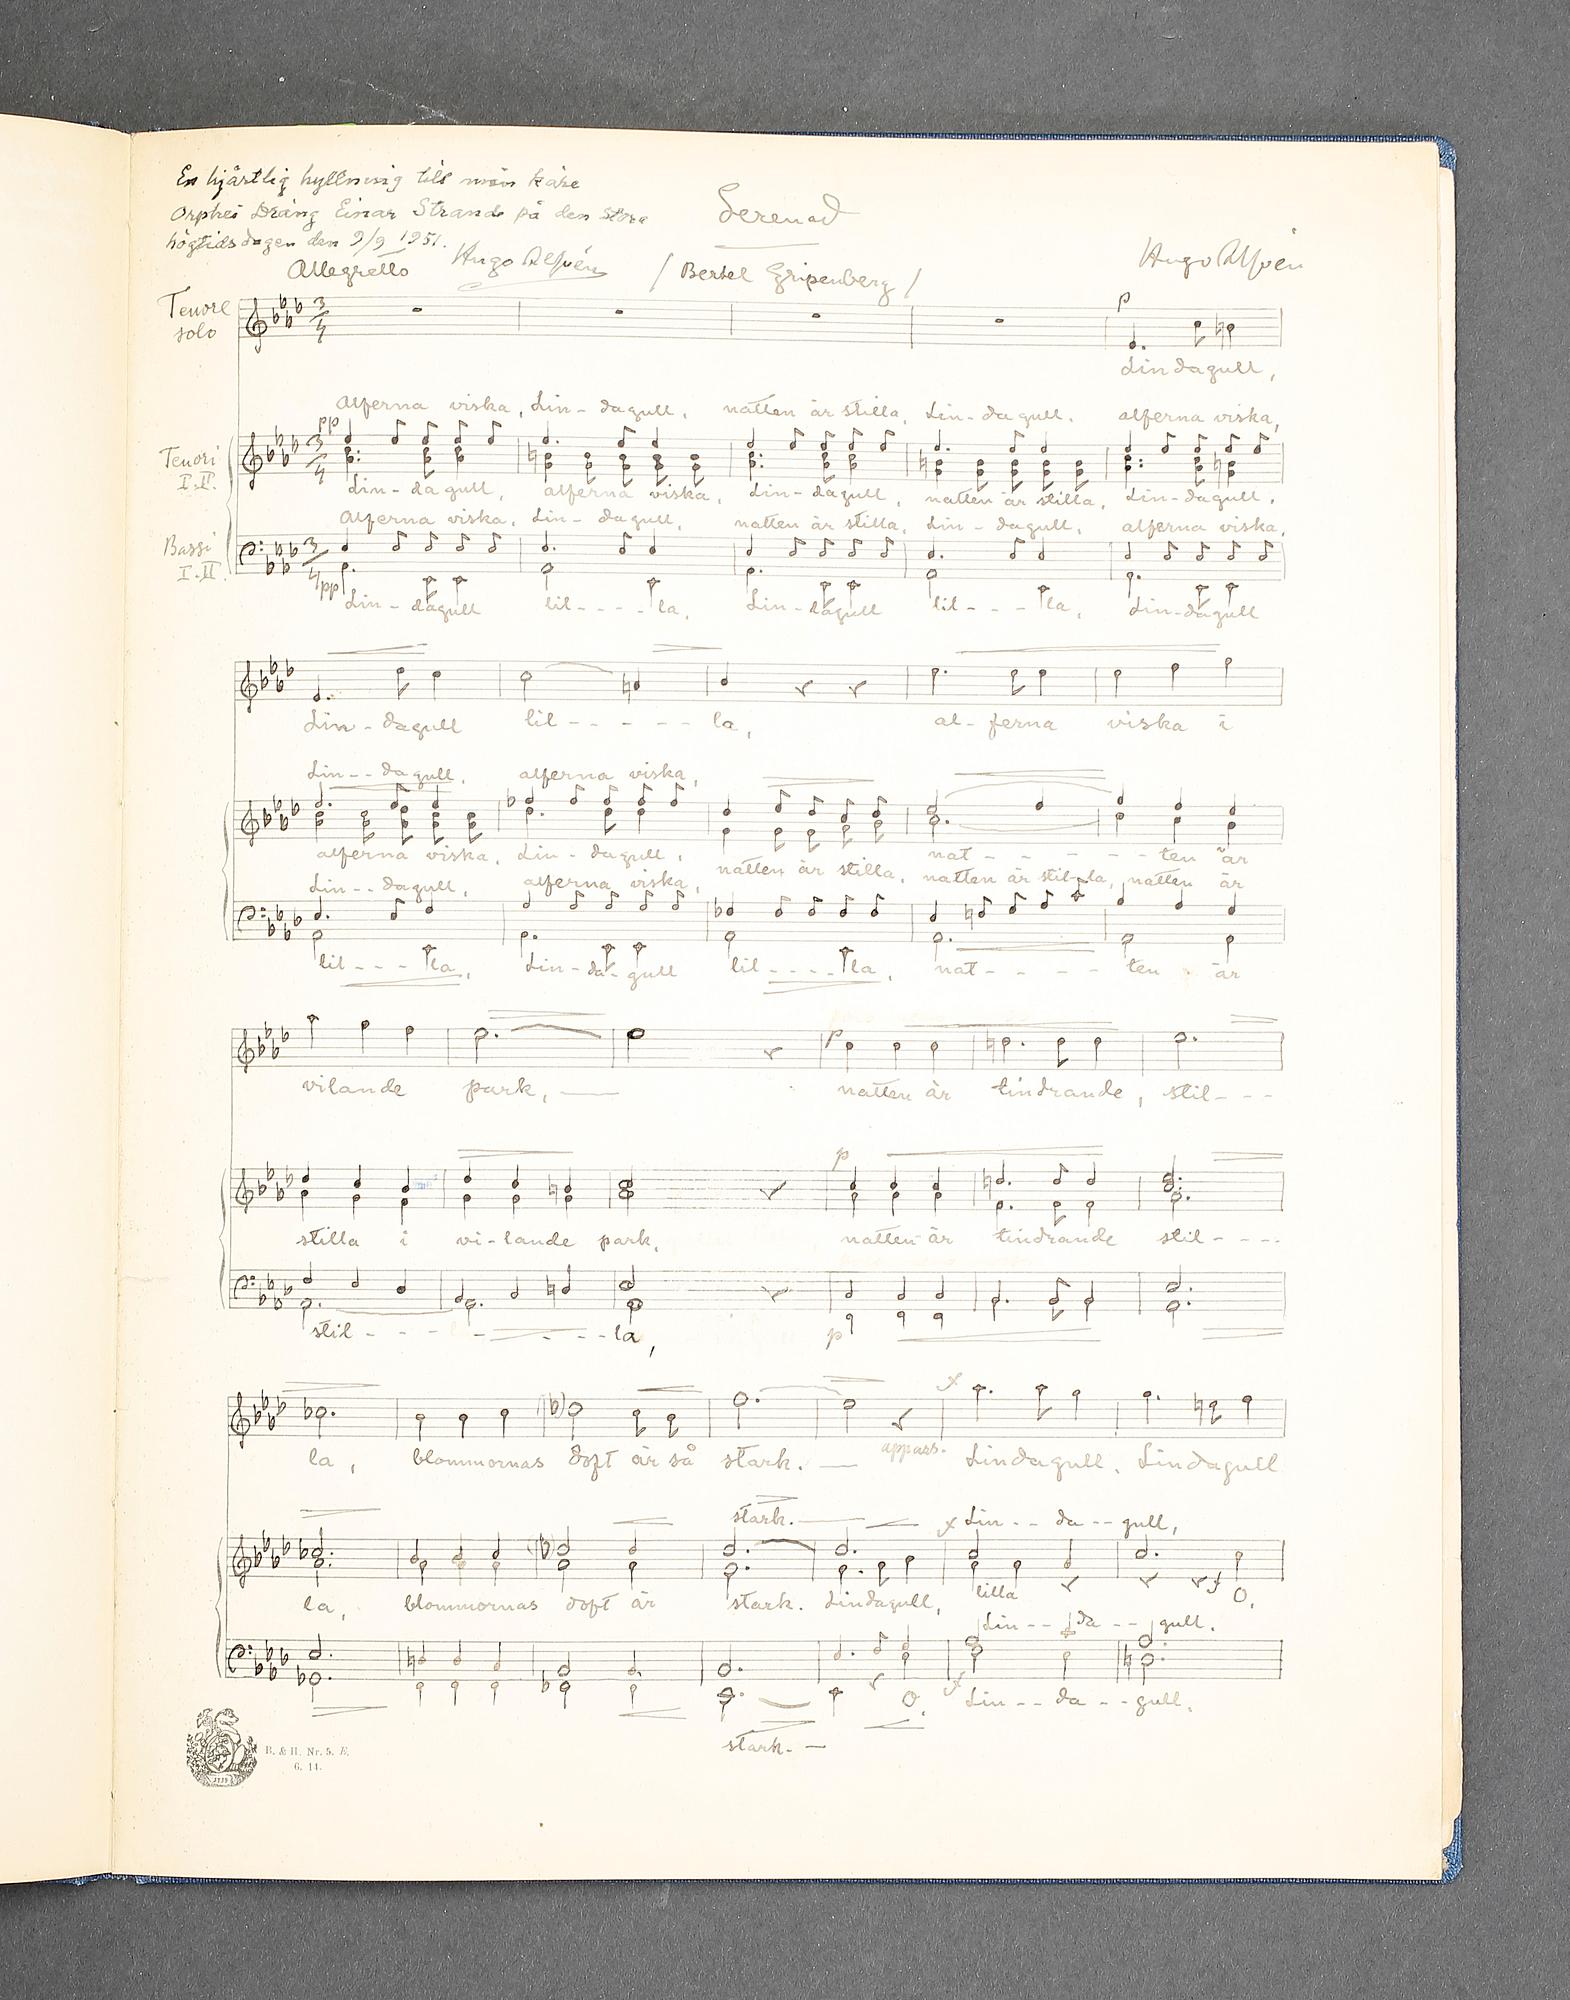 En hjärtlig hyllning till min käre
Orphei Dräng Einar Strand på den stora
högtidsdagen den 9/9 1951.
Hugo Alfvén
Serenad
Allegretto
/ Bertel Gripenberg /
Hugo Alfvén
Tenore
solo
p
Lindagull,
Alferna viska, Lin - dagull, natten är stilla, Lin - dagull. alferna viska,
pp
Tenori
I. II.
Lin - dagull, alferna viska, Lin - dagull, natten är stilla, Lin - dagull,
Alferna viska, Lin - dagull, natten är stilla, Lin - dagull, alferna viska,
Bassi
I. II.
pp
Lin - dagull lil - - - - la, Lin - dagull lil - - - la, Lin - dagull
Lin - dagull lil - - - - - la, al - ferna viska i
Lin - - dagull, alferna viska,
alferna viska, Lin - dagull, natten är stilla, nat - - - - - ten är
Lin - - dagull, alferna viska, natten är stil - la, natten är
lil - - - la, Lin - da - gull lil - - - - la, nat - - - - ten är
vilande park, — p natten är tindrande, stil - - -
p
stilla i vi - lande park, natten är tindrande stil - - - -
stil - - - - - - - la, p
la, blommornas doft är så stark. — appass. f Lindagull, Lindagull
stark. — f Lin - - da - - gull,
la, blommornas doft är stark. Lindagull, lilla f O,
Lin - - da - - gull,
O, f Lin - - da - - gull,
stark. —
B. & H. Nr. 5. E.
6. 14.